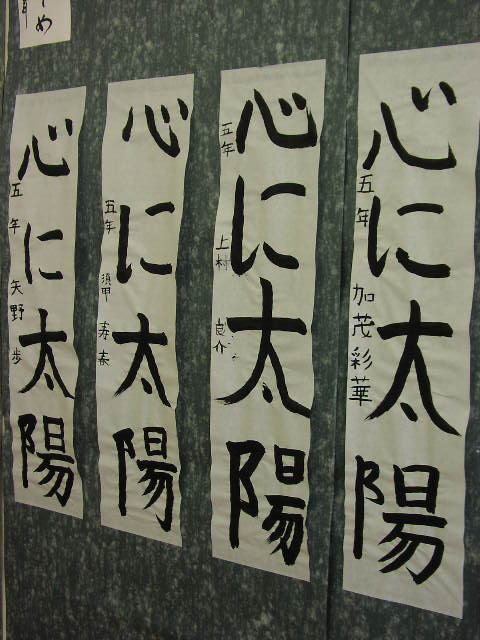 心に太陽
五年 加茂彩華
心に太陽
五年 上村 良介
心に太陽
五年 須甲
心に太陽
五年 矢野 歩
め